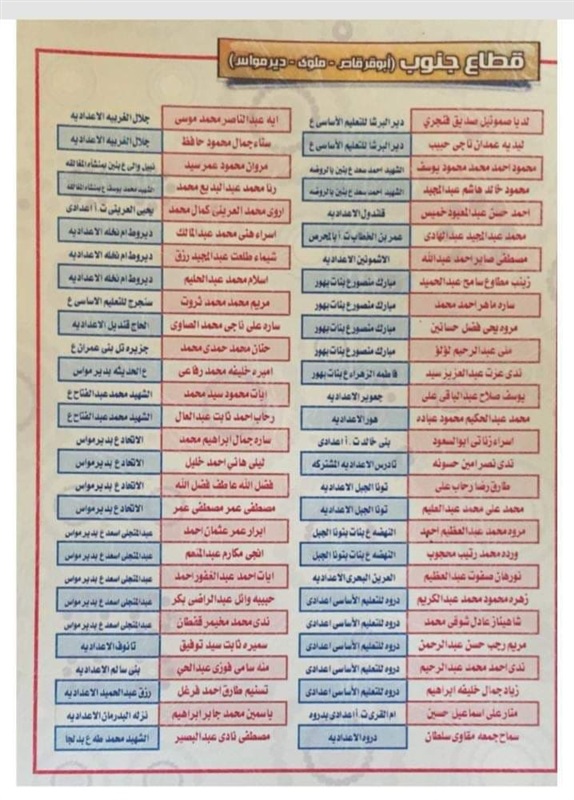 قطاع جنوب (أبوقرقاص - ملوى - ديرمواس)
لديا صموئيل صديق فنجري دير البرشا للتعليم الأساسى ع
ليديه عمدان ناجى حبيب دير البرشا للتعليم الأساسى ع
محمود احمد محمد محمود يوسف الشهيد احمد سعد ع بنين بالروضه
محمود خالد هاشم عبدالمجيد الشهيد احمد سعد ع بنين بالروضه
احمد حسن عبدالمعبود خميس قلندول الاعداديه
محمد عبدالمجيد عبدالهادى عمر بن الخطاب ت.أ بالمحرص
مصطفى صابر احمد عبدالله الاشمونين الاعداديه
زينب مطاوع سامح عبدالحميد مبارك منصور ع بنات بهور
ساره ماهر احمد محمد مبارك منصور ع بنات بهور
مروه يحى فضل حسانين مبارك منصور ع بنات بهور
منى عبدالرحيم لؤلؤ مبارك منصور ع بنات بهور
ندى عزت عبدالعزيز سيد فاطمه الزهراء ع بنات بهور
يوسف صلاح عبدالباقى على جعوير الاعداديه
محمد عبدالحكيم محمود عباده هور الاعداديه
اسراء زناتى ابوالسعود بنى خالد ت.أ اعدادى
ندى نصر امين حسونه نادرس الاعداديه المشتركه
طارق رضا رحاب على تونا الجبل الاعداديه
محمد على محمد عبدالعليم تونا الجبل الاعداديه
مروه محمد عبدالعظيم النهضه ع بنات بتونا الجبل
ورده محمد رتيب محجوب النهضه ع بنات بتونا الجبل
نورهان صفوت عبدالعظيم العرين البحرى الاعداديه
زهره محمود محمد عبدالكريم دروه للتعليم الأساسى اعدادى
شاهيناز عادل شوقى محمد دروه للتعليم الأساسى اعدادى
مريم رجب حسن عبدالرحمن دروه للتعليم الأساسى اعدادى
ندى احمد محمد عبدالرحيم دروه للتعليم الأساسى اعدادى
زياد جمال خليفه ابراهيم دروه للتعليم الأساسى اعدادى
منار على اسماعيل حسين ام القرى ت.أ اعدادى بدروه
سماح جمعه مقاوى سلطان دروه الاعداديه
ايه عبدالناصر محمد موسى جلال الغربيه الاعداديه
سناء جمال محمود حافظ جلال الغربيه الاعداديه
مروان محمود عمر سيد نبيل والى ع بنين بمنشأه المغالقه
رنا محمد عبدالبديع محمد الشهيد محمد يوسف ع بمنشأه المغالقه
اروى محمد العرينى كمال محمد يحيى العرينى ت.أ اعدادى
اسراء هنى محمد عبدالمالك ديروط ام نخله الاعداديه
شيماء طلعت عبدالمجيد رزق ديروط ام نخله الاعداديه
اسلام محمد عبدالحليم ديروط ام نخله الاعداديه
مريم محمد محمد ثروت سنجرج للتعليم الاساسى ع
ساره على ناجى محمد الصاوى الحاج قنديل الاعداديه
حنان محمد حمدى محمد جزيره تل بنى عمران ع
اميره خليفه محمد رفاعى ع الحديثه بديرمواس
ايات محمود سيد محمد الشهيد محمد عبدالفتاح ع
رحاب احمد ثابت عبدالعال الشهيد محمد عبدالفتاح ع
ساره جمال ابراهيم محمد الاتحاد ع بديرمواس
ليلى هانى احمد خليل الاتحاد ع بديرمواس
فضل الله عاطف فضل الله الاتحاد ع بديرمواس
مصطفى عمر مصطفى عمر الاتحاد ع بديرمواس
ابرار عمر عثمان احمد عبدالمتجلى اسعد ع بديرمواس
انجى مكارم عبدالمنعم عبدالمتجلى اسعد ع بديرمواس
ايات احمد عبدالغفور احمد عبدالمتجلى اسعد ع بديرمواس
حبيبه وائل عبدالراضى بكر عبدالمتجلى اسعد ع بديرمواس
ندى محمد مخيمر قفطان عبدالمتجلى اسعد ع بديرمواس
سميره ثابت سيد توفيق تانوف الاعداديه
منه سامى فوزى عبدالحي بنى سالم الاعداديه
تسنيم طارق احمد فرغل رزق عبدالحميد الاعداديه
ياسمين محمد جابر ابراهيم نزله البدرمان الاعداديه
مصطفى نادى عبدالبصير الشهيد محمد طه ع بدلجا